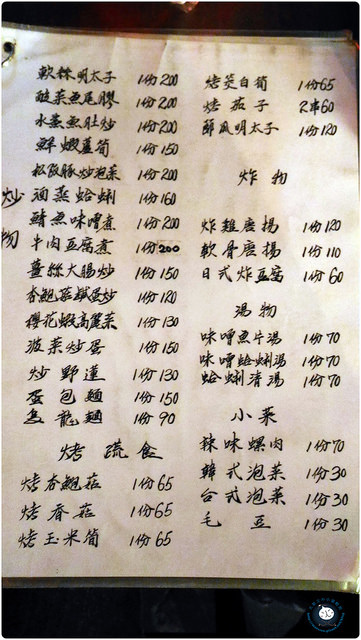 軟絲明太子 1份200
酸菜魚尾膠 1份200
水蒸魚肚炒 1份200
鮮蝦蘆筍 1份150
松阪豚炒泡菜 1份200
酒蒸蛤蜊 1份160
鯖魚味噌煮 1份200
牛肉豆腐煮 1份200
薑絲大腸炒 1份150
杏鮑菇鹹蛋炒 1份120
櫻花蝦高麗菜 1份130
菠菜炒蛋 1份150
炒野蓮 1份130
蛋包麵 1份150
烏龍麵 1份90
炒物
烤蔬食
烤杏鮑菇 1份65
烤香菇 1份65
烤玉米筍 1份65
烤茭白筍 1份65
烤茄子 2串60
明太子 1份120
炸物
炸雞唐揚 1份120
軟骨唐揚 1份110
日式炸豆腐 1份60
湯物
味噌魚片湯 1份70
味噌蛤蜊湯 1份70
蛤蜊清湯 1份70
小菜
辣味螺肉 1份70
韓式泡菜 1份30
台式泡菜 1份30
毛豆 1份30